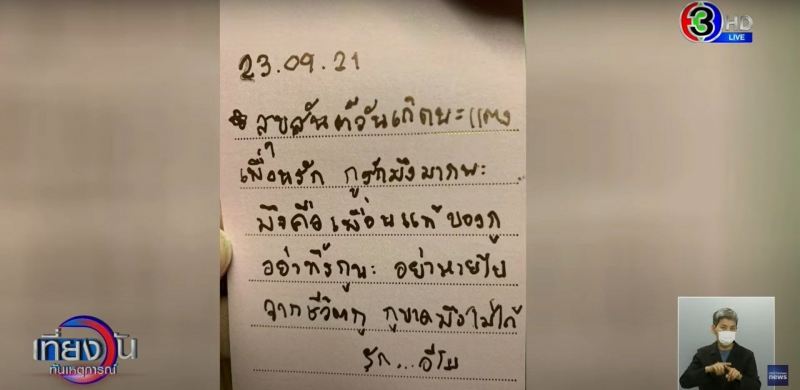 3 HD
LIVE
23.09.21
สุขสันต์วันเกิดนะแตง
เพื่อนรัก กูรักมึงมากนะ
มึงคือเพื่อนแท้ของกู
อย่าทิ้งกูนะ อย่าหายไป
จากชีวิตกู กูขาดมึงไม่ได้
รัก...
เที่ยงวัน
ทันเหตุการณ์
news